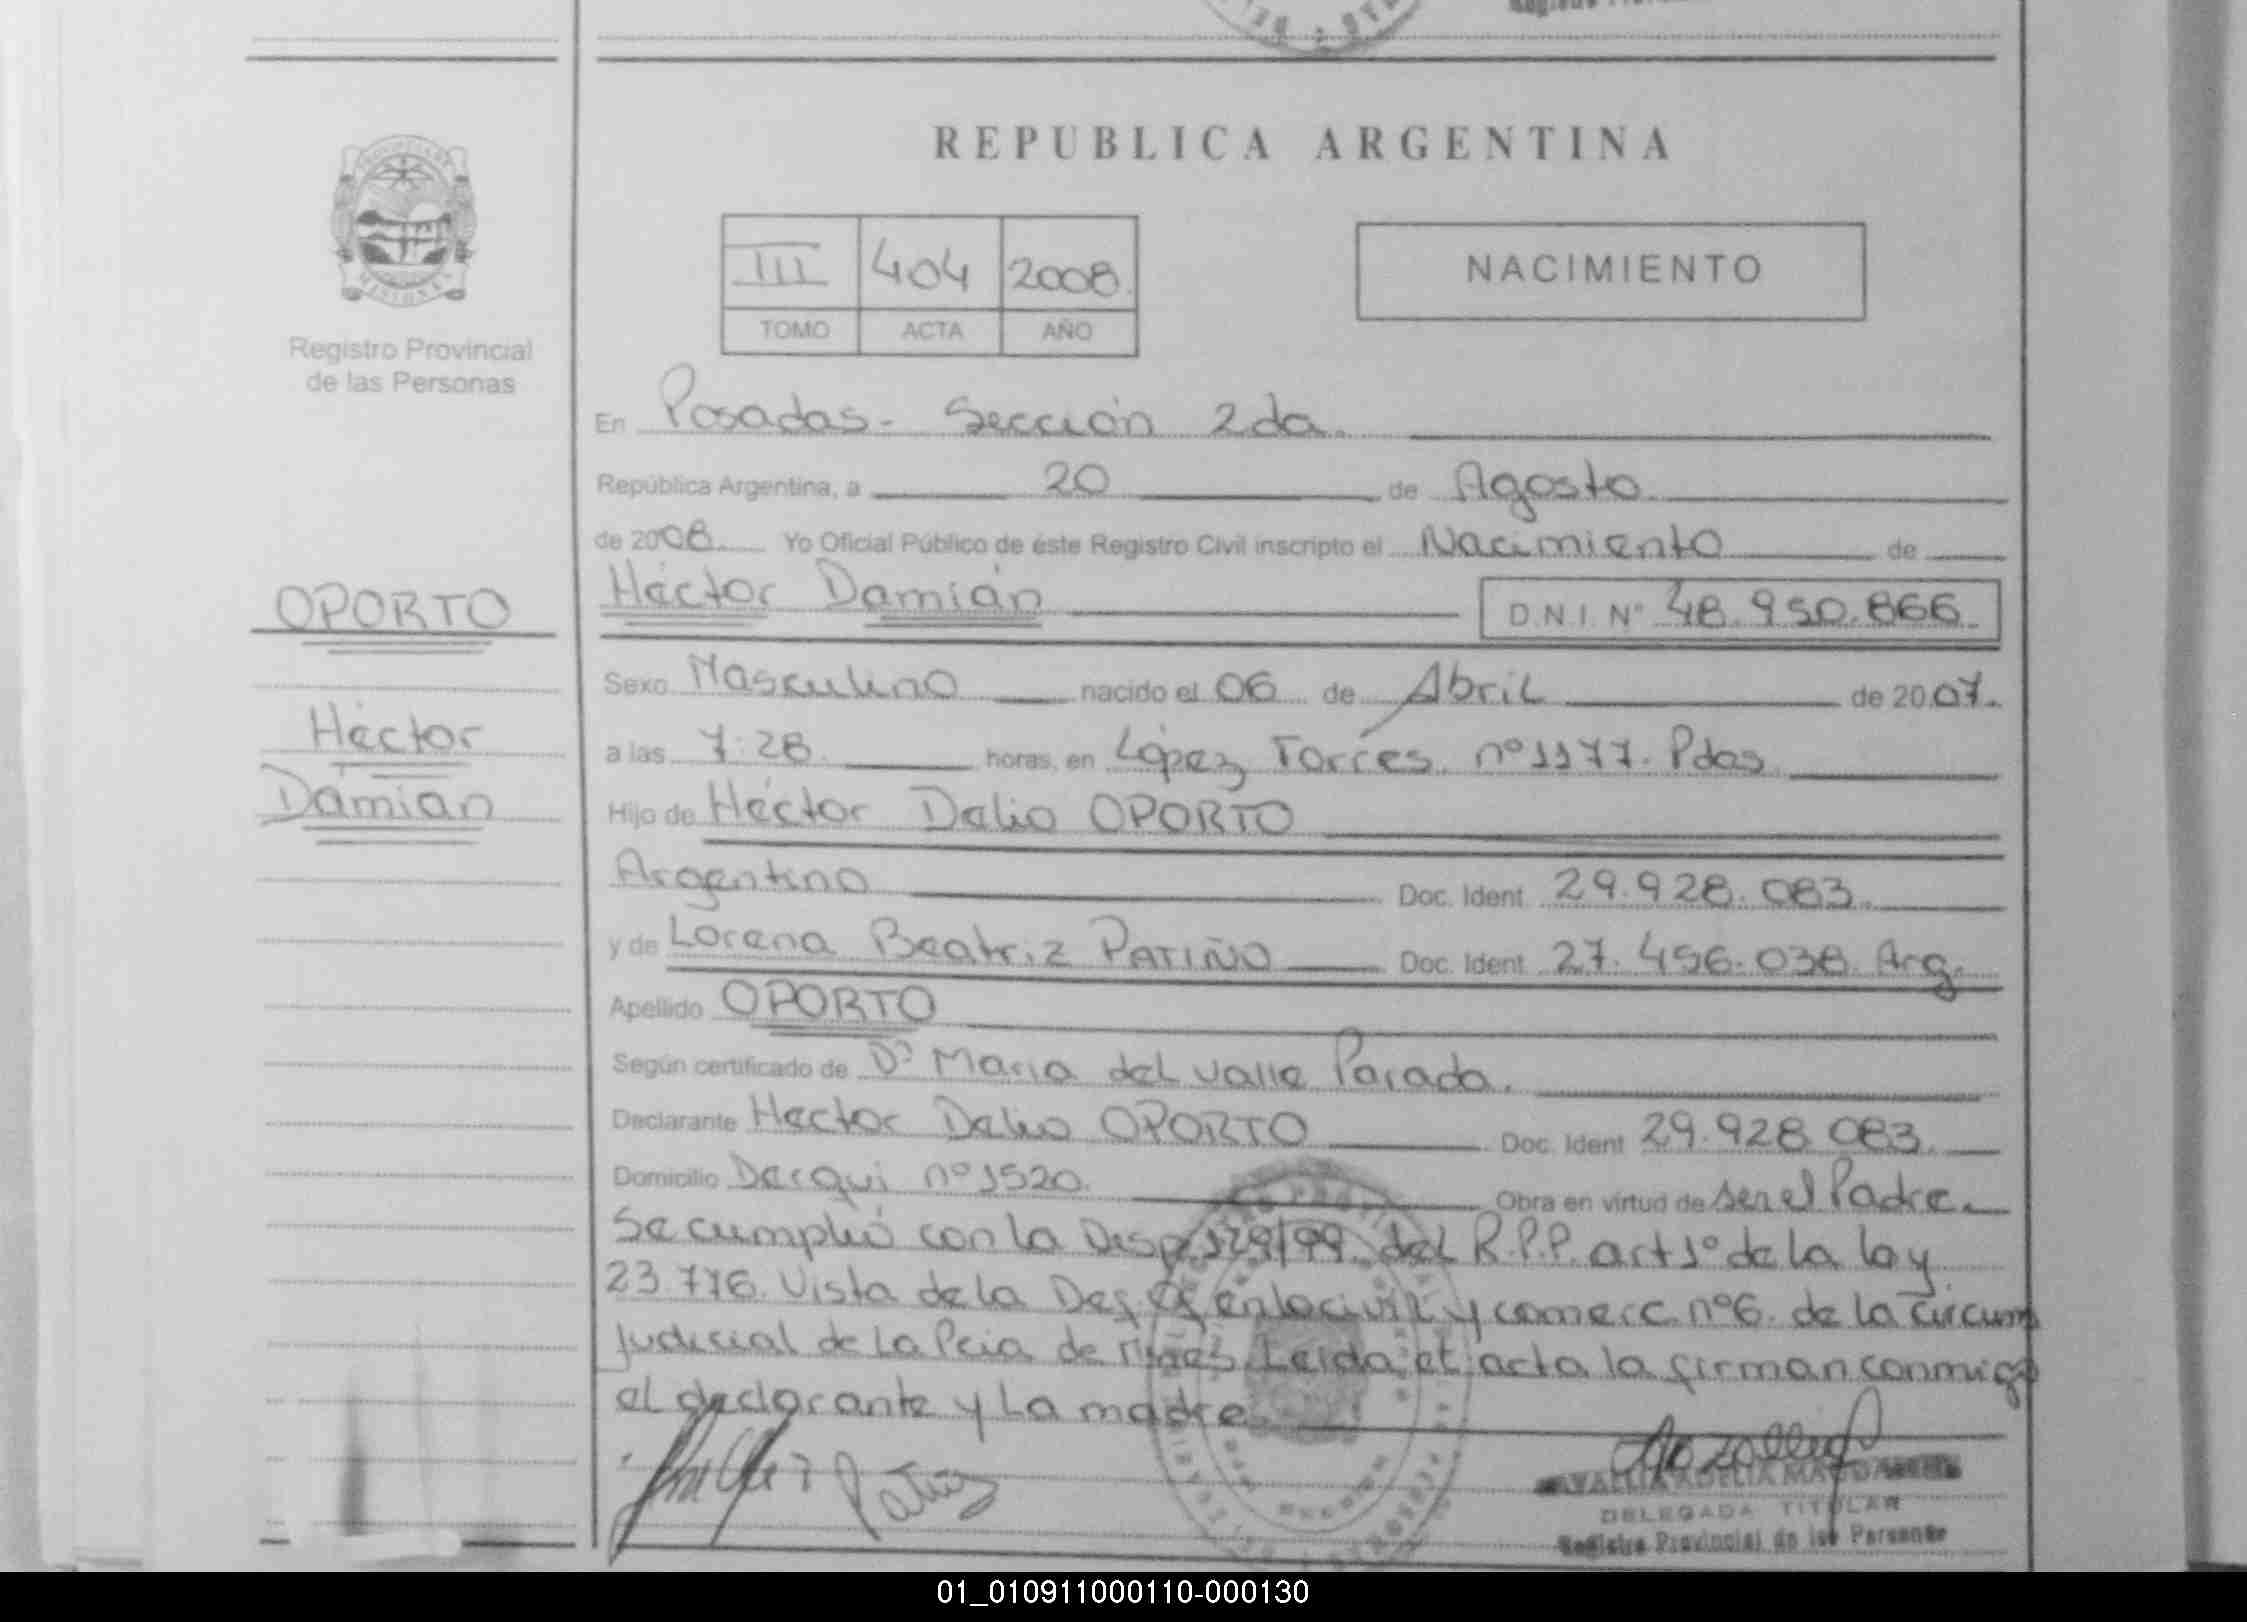 REPUBLICA ARGENTINA
NACIMIENTO
III 404 2008.
TOMO ACTA AÑO
Registro Provincial
de las Personas
OPORTO
Héctor
Damián
En Posadas - Sección 2da.
República Argentina, a 20 de Agosto
de 2008. Yo Oficial Público de éste Registro Civil inscripto el Nacimiento de
Héctor Damián D.N.I. Nº 48.950.866.
Sexo Masculino nacido el 06 de Abril de 2007.
a las 7:28. horas, en López Torres nº 1177. Pdas
Hijo de Héctor Delio OPORTO
Argentino Doc. Ident. 29.928.083.
y de Lorena Beatriz PATIÑO Doc. Ident. 27.456.038. Arg.
Apellido OPORTO
Según certificado de Dª Maria del Valle Parada.
Declarante Hector Delio OPORTO Doc. Ident. 29.928.083.
Domicilio Derqui nº 1520. Obra en virtud de ser el Padre.
Se cumplió con la Disp. 129/99. del R.P.P. art 1º de la ley
23.776. Vista de la Def. en lo civil y comerc. nº 6. de la circum
judicial de la Pcia de Mnes. Leída el acta la firman conmigo
el declarante y la madre.
Patiño
DELEGADA TITULAR
Registro Provincial de las Personas
01_010911000110-000130